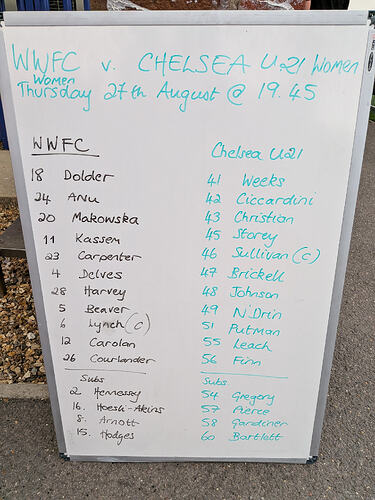 WWFC v. CHELSEA U21 Women
Women
Thursday 27th August @ 19.45
WWFC
18 Dolder
24 Anu
20 Makowska
11 Kassem
23 Carpenter
4 Delves
28 Harvey
5 Beaver
6 Lynch (c)
12 Carolan
26 Courlander
Subs
2. Hennessy
16. Hoesli-Atkins
8. Arnott
15. Hodges
Chelsea U21
41 Weeks
42 Ciccardini
43 Christian
45 Storey
46 Sullivan (c)
47 Brickell
48 Johnson
49 N'Drin
51 Putman
55 Leach
56 Finn
Subs
54 Gregory
57 Pierce
58 Gardiner
60 Bartlett